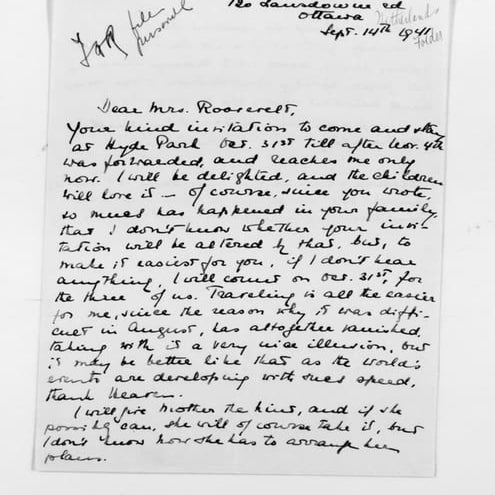 120 Lansdowne Rd
Ottawa
Sept. 14th 1941
FDR
file
personal
Netherlands
Folder
Dear Mrs. Roosevelt,
Your kind invitation to come and stay
at Hyde Park Oct. 31st till after Nov. 4th
was forwarded, and reaches me only
now. I will be delighted, and the children
will love it – of course, since you wrote,
so much has happened in your family,
that I don't know whether your invi-
tation will be altered by that, but, to
make it easiest for you, if I don't hear
anything, I will count on Oct. 31st, for
the three of us. Traveling is all the easier
for me, since the reason why it was diffi-
cult in August, has altogether vanished,
taking with it a very nice illusion, but
it may be better like that as the world's
events are developing with such speed,
thank Heaven.
I will give Mother the hint, and if she
possibly can, she will of course take it, but
I don't know how she has to arrange her
plans.